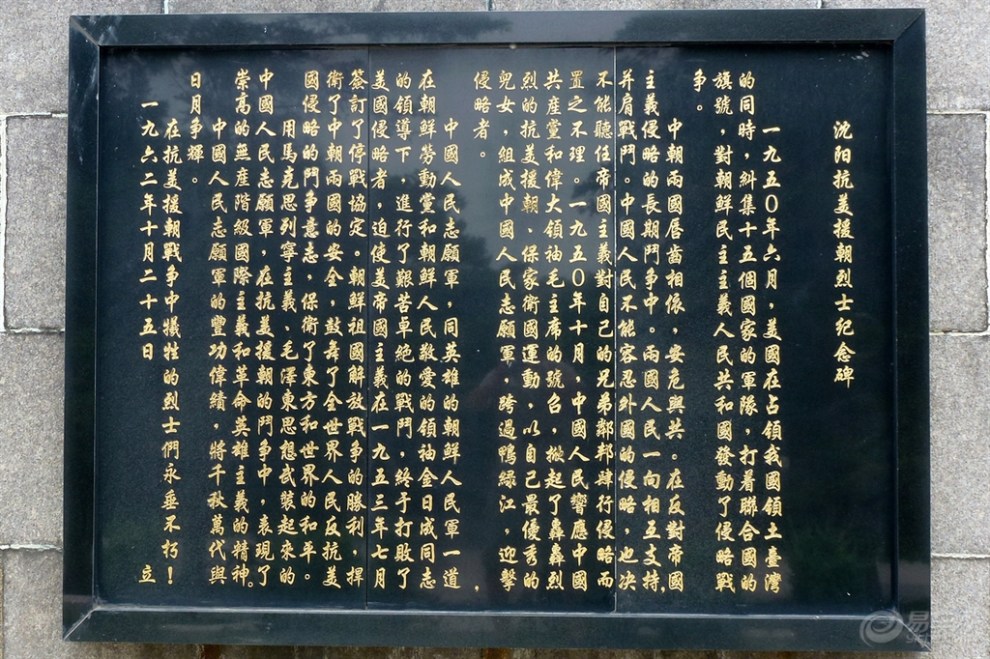 沈阳抗美援朝烈士纪念碑
一九五〇年六月，美國在占領我國領土臺灣
的同時，糾集十五個國家的軍隊，打着聯合國的
旗號，對朝鮮民主主義人民共和國發動了侵略戰
争。
中朝兩國唇齒相依，安危與共。在反對帝國
主義侵略的長期鬥争中。兩國人民一向相互支持，
并肩戰鬥。中國人民不能容忍外國的侵略，也决
不能聽任帝國主義對自己的兄弟鄰邦肆行侵略而
置之不理。一九五〇年十月，中國人民響應中國
共産黨和偉大領袖毛主席的號召，掀起了轟轟烈
烈的抗美援朝、保家衛國運動，以自己最優秀的
兒女，組成中國人民志願軍，跨過鴨緑江，迎擊
侵略者。
中國人民志願軍，同英雄的朝鮮人民軍一道，
在朝鮮勞動黨和朝鮮人民敬愛的領袖金日成同志
的領導下，進行了艱苦卓絶的戰鬥，終于打敗了
美國侵略者，迫使美帝國主義在一九五三年七月
簽訂了停戰協定。朝鮮祖國解放戰争的勝利，捍
衛了中朝兩國的安全，鼓舞了全世界人民反抗美
國侵略的鬥争意志，保衛了東方和世界的和平。
用馬克思列寧主義、毛澤東思想武裝起來的
中國人民志願軍，在抗美援朝的鬥争中，表現了
崇高的無産階級國際主義和革命英雄主義的精神。
中國人民志願軍的豐功偉績，將千秋萬代與
日月争輝。
在抗美援朝戰争中犧牲的烈士們永垂不朽！
一九六二年十月二十五日 立